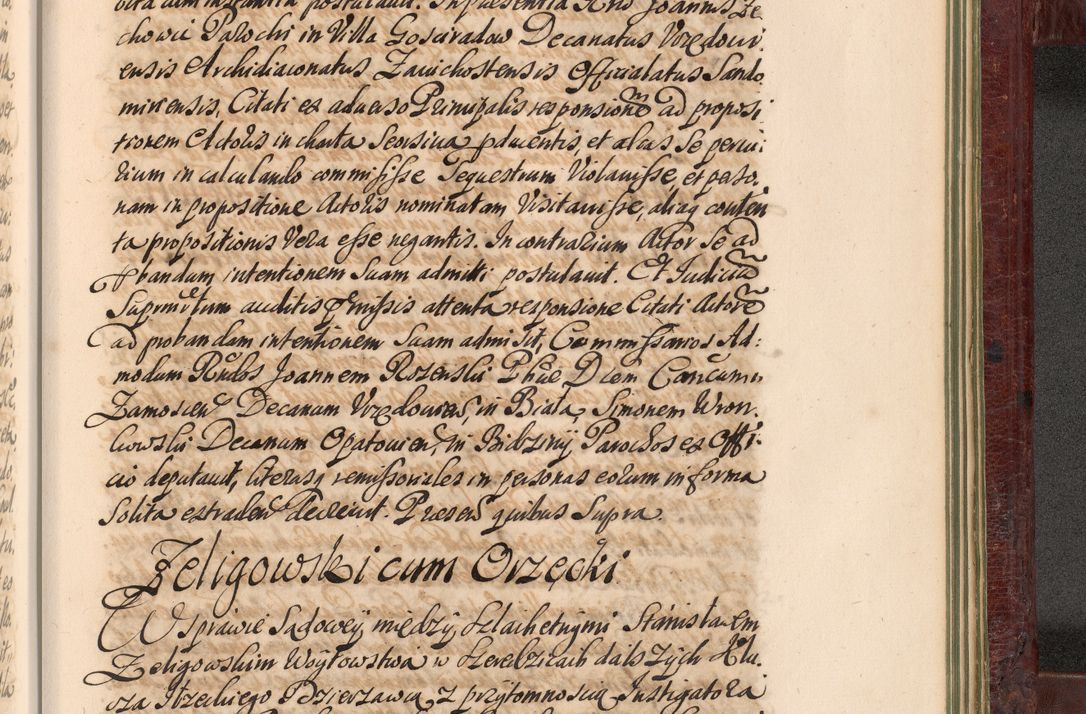 vita cum instantia postulavit. In praesentia Rndi Joannis Ze
chowic Parochi in Villa Gosciradow Decanatus Vrzędovi
ensis Archidiaconatus Zavichostensis Officialatus Sando
miriensis, Citati ex adverso Principalis responsione ad proposi
tionem Actoris in charta Seorsiva pducentis, et alias Se periu
rium in calculando commisisse Sequestrum Violavisse, et perso
nam in propositione Actoris nominatam Visitavisse, aliaq conten
ta propositionis Vera esse negantis. In contrarium Actor Se ad
pbandum intentionem Suam admitti postulavit. Et Judiciu
Supremum auditis pmissis attenta responsione Citati Actore
ad probandam intentionem Suam admisit, Commissarios Ad:
modum Rndos Joannem Rozenski Phiae Drem Canicum
Zamoscien Decanum Vrzedovien, in Biała, Simonem Wron
kowski Decanum Opatovien, in Bidziny Parochos ex Offi:
cio deputavit, literasq remissoriales in personas eorum in forma
Solita extraden decrevit. Praesen quibus Supra.
Zeligowski cum Orzęcki
W Sprawie Sądowey między Szlachetnymi Stanisławem
Zeligowskim Woytowstwa w Szerebzicach dalszych Klu
cza Rzeckiego Dzierzawcą, z przytomnoscią Instigatora